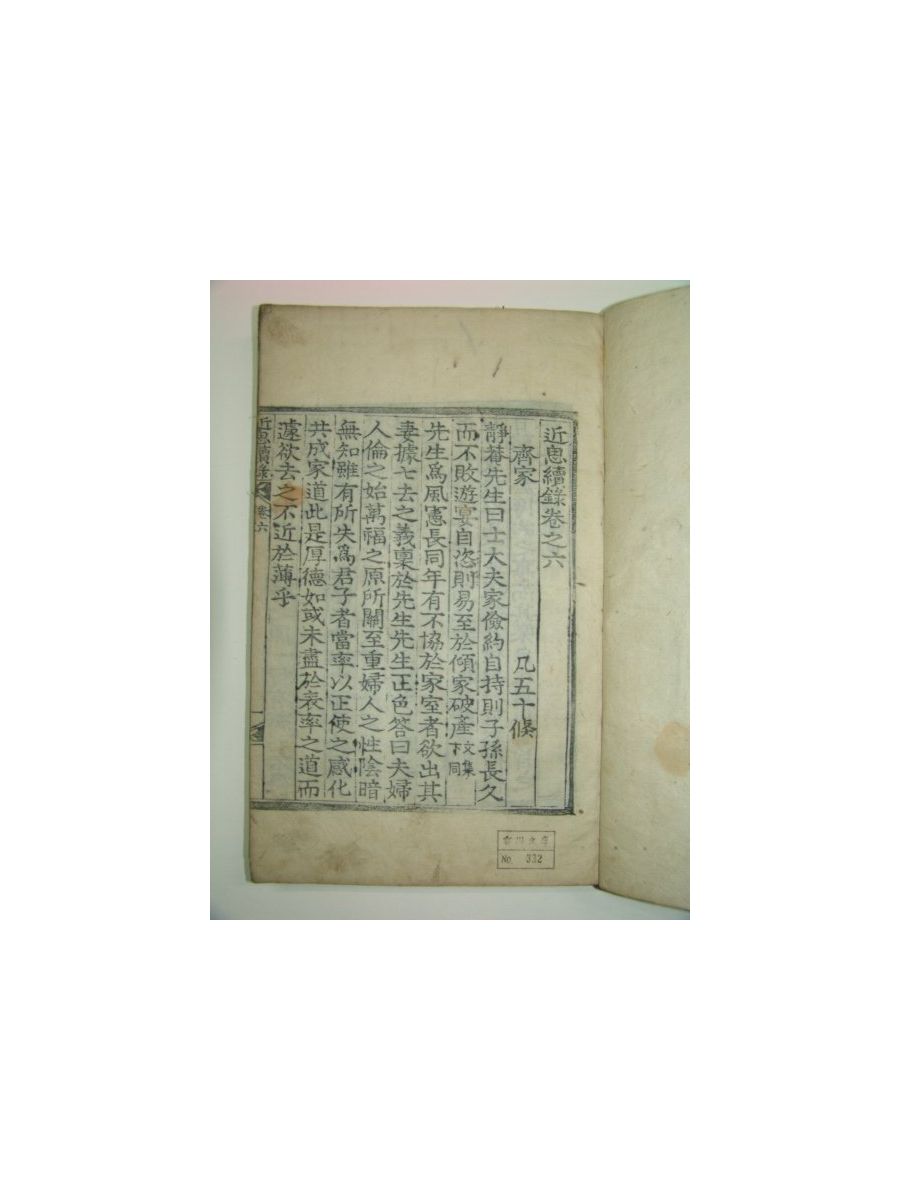 近思續錄卷之六
齊家 凡五十條
靜菴先生曰士大夫家儉約自持則子孫長久
而不敗遊宴自恣則易至於傾家破產文集下同
先生爲風憲長同年有不協於家室者欲出其
妻據七去之義稟於先生先生正色答曰夫婦
人倫之始萬福之原所關至重婦人之性陰暗
無知雖有所失爲君子者當率以正使之感化
共成家道此是厚德如或未盡於表率之道而
遽欲去之不近於薄乎
近思續錄 卷六
No. 332